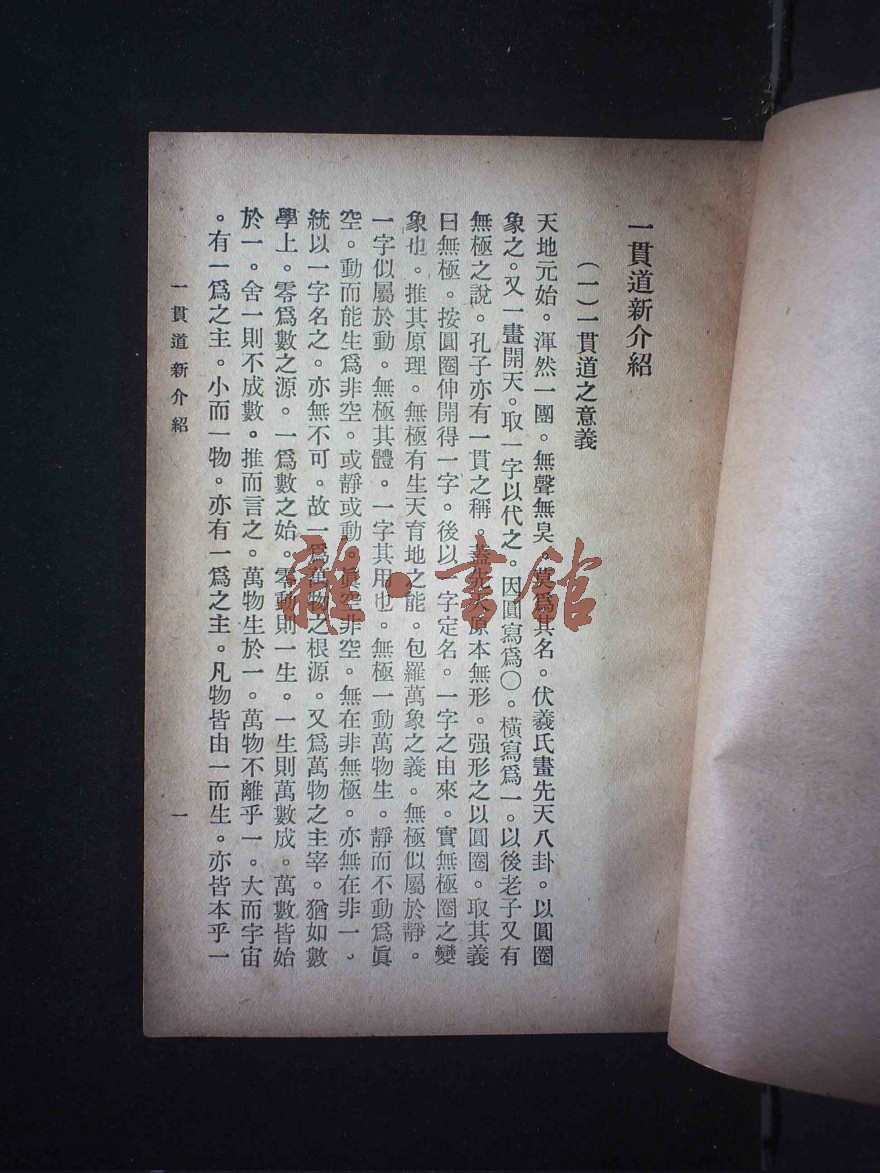 一貫道新介紹
(一)一貫道之意義
天地元始。渾然一團。無聲無臭。莫爲其名。伏羲氏畫先天八卦。以圓圈
象之。又一畫開天。取一字以代之。因圓寫爲〇。橫寫爲一。以後老子又有
無極之說。孔子亦有一貫之稱。蓋先天原本無形。强形之以圓圈。取其義
曰無極。按圓圈伸開得一字。後以一字定名。一字之由來。實無極圈之變
象也。推其原理。無極有生天育地之能。包羅萬象之義。無極似屬於靜。
一字似屬於動。無極其體。一字其用也。無極一動萬物生。靜而不動爲眞
空。動而能生爲非空。或靜或動。眞空非空。無在非無極。亦無在非一。
統以一字名之。亦無不可。故一爲萬物之根源。又爲萬物之主宰。猶如數
學上。零爲數之源。一爲數之始。零動則一生。一生則萬數成。萬數皆始
於一。舍一則不成數。推而言之。萬物生於一。萬物不離乎一。大而宇宙
。有一爲之主。小而一物。亦有一爲之主。凡物皆由一而生。亦皆本乎一
一貫道新介紹
一
雜·書館